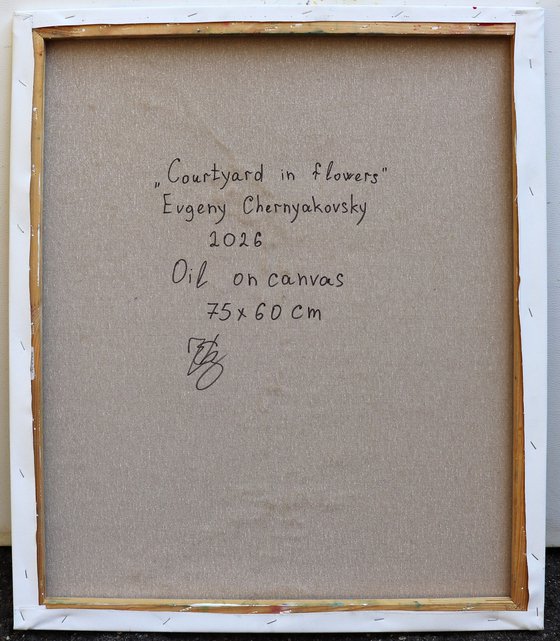 „Courtyard in flowers"
Evgeny Chernyakovsky
2026
Oil on canvas
75x60 cm